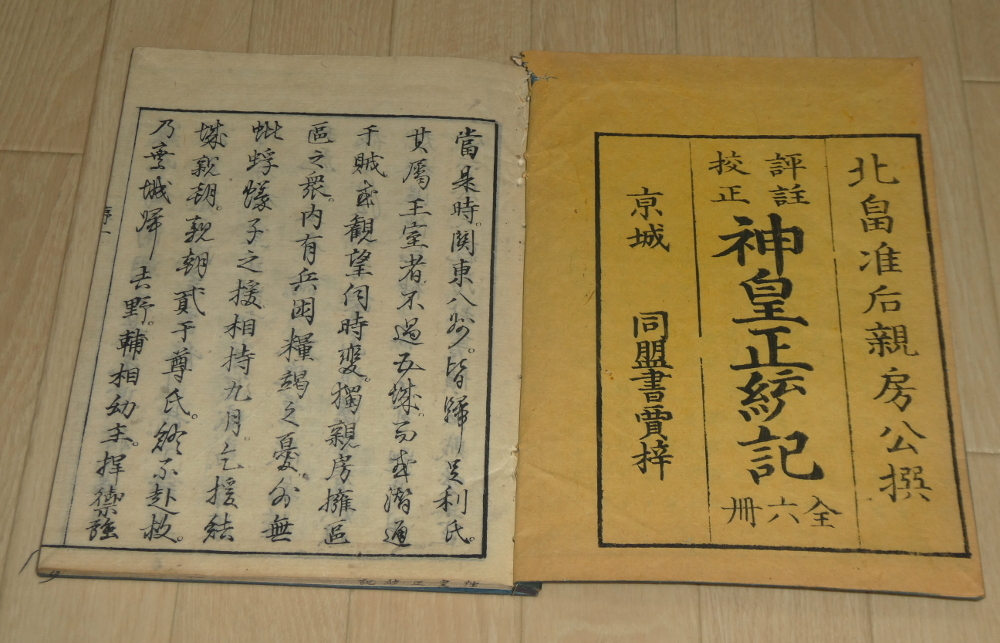 北畠准后親房公撰
評註
校正
神皇正統記
全六冊
亰城 同盟書賈梓
當是時。関東八州。皆歸足利氏。
其屬王室者不過五城。而或潛通
于賊或觀望伺時變。獨親房擁區
區之衆。内有兵困糧竭之憂。外無
蚍蜉蟻子之援相持九月。乞援結
城親朝。親朝貳于尊氏。終不赴救。
乃棄城歸吉野。輔相幼主。捍禦強